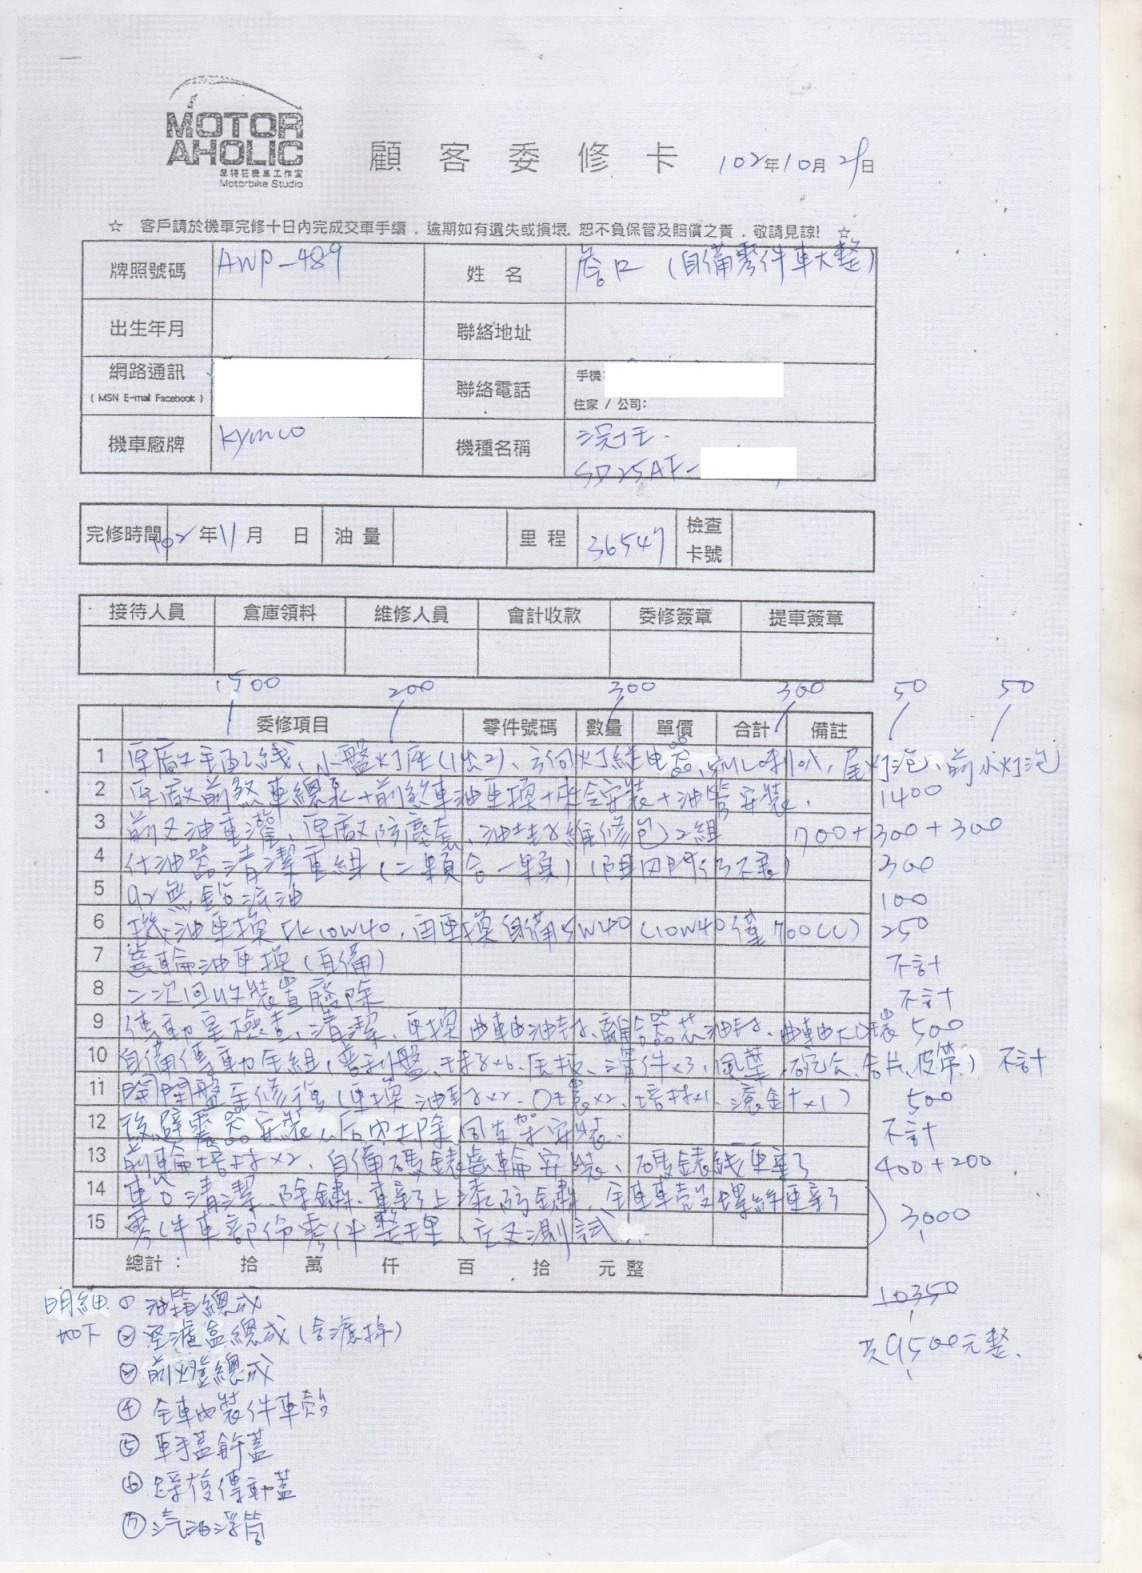 MOTOR
AHOLIC
摩特荘機車工作室
Motorbike Studio
顧客委修卡 102年10月29日
☆ 客戶請於機車完修十日內完成交車手續，逾期如有遺失或損壞，恕不負保管及賠償之責，敬請見諒! ☆
牌照號碼 AWP-489 姓名 (自備零件車大整)
出生年月 聯絡地址
網路通訊 (MSN E-mail Facebook) 聯絡電話 手機:
住家 / 公司:
機車廠牌 kymco 機種名稱
SD25AF-
完修時間 102年11月 日 油量 里程 36547 檢查卡號
接待人員 倉庫領料 維修人員 會計收款 委修簽章 提車簽章
1500 200 300 300 50 50
委修項目 零件號碼 數量 單價 合計 備註
1 原廠主配線、小盤灯座(1比2)、方向灯繼电器、喇叭、尾灯泡、前小灯泡
2 原廠前煞車總泵+前煞車油更換+安裝+油管安裝. 1400
3 前叉油更換、原廠防塵套、油封維修包2組 700+300+300
4 化油器清潔重組(二顆合一顆) 300
5 92無鉛汽油 100
6 機油更換 10W40, 再更換自備5W40 (10W40僅700CC) 250
7 齒輪油更換(自備) 不計
8 二次回收裝置廢除 不計
9 傳動室檢查、清潔、更換曲車由油封、離合器蕊油封、曲車由大O環 500
10 自備傳動全組、普利盤、珠子x6、壓板、滑件x3、風葉、碗公、合片、皮帶) 不計
11 開閉盤全修復(更換油封x2、O環x2、培林x1、滾針x1) 500
12 後避震器安裝 不計
13 前輪培林x2、自備碼錶齒輪安裝、碼錶線更新 400+200
14 車台清潔、除鏽、重新上漆防鏽、全車車殼螺絲更新
15 零件車部份零件整理、交叉測試 3000
總計： 拾 萬 仟 百 拾 元整 10350
共9500元整.
明細如下
① 油箱總成
② 空濾盒總成(含濾棉)
③ 前燈總成
④ 全車內裝件車殼
⑤ 車手蓋飾蓋
⑥ 傳動蓋
⑦ 汽油浮筒